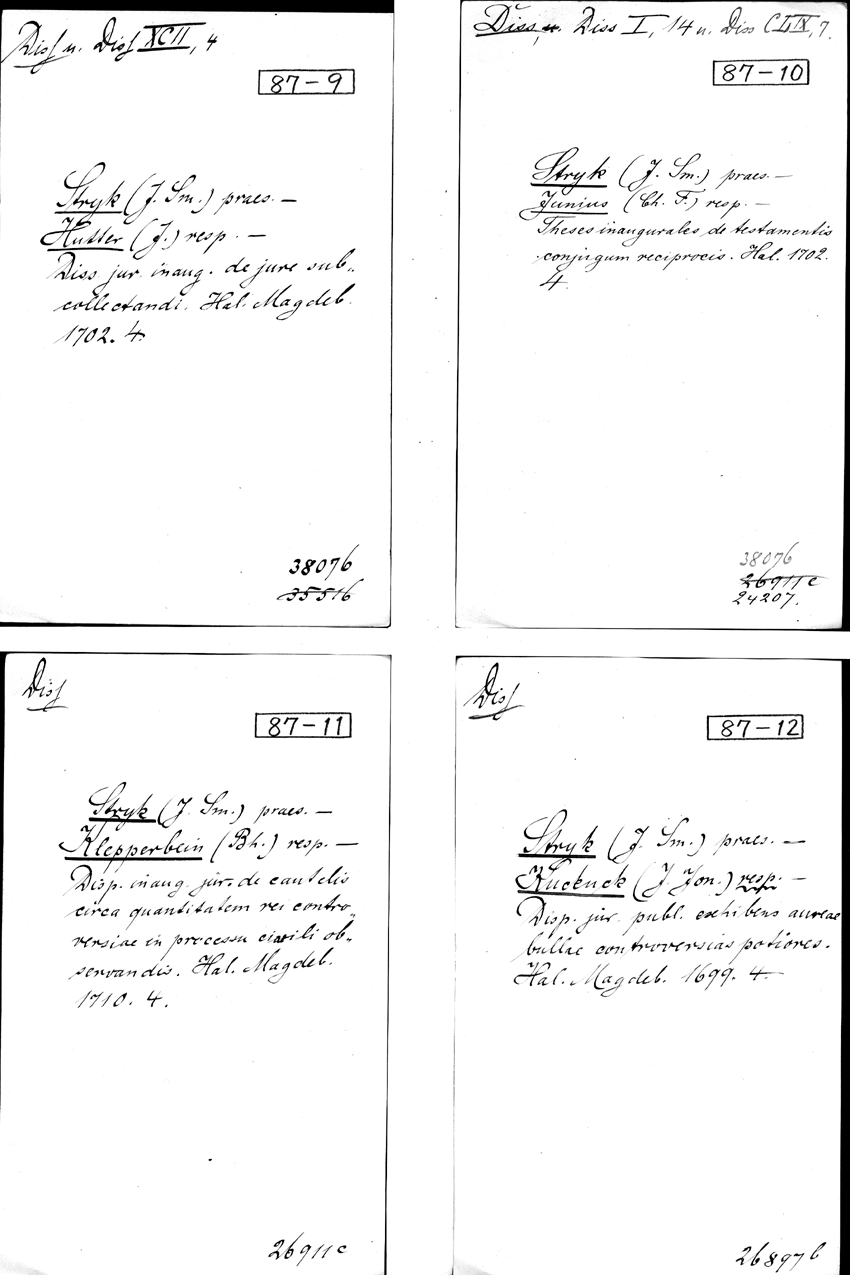 Diss u. Diss XCII, 4
87-9
Stryk (J. Sm.) praes. —
Hutter (J.) resp. —
Diss. jur. inaug. de jure sub-
collectandi. Hal. Magdeb.
1702. 4.
38076
35516
Diss u. Diss I, 14 u. Diss CLIX, 7.
87-10
Stryk (J. Sm.) praes. —
Junius (Ch. F.) resp. —
Theses inaugurales de testamentis
conjugum reciprocis. Hal. 1702.
4.
38076
26911c
24207.
Diss
87-11
Stryk (J. Sm.) praes. —
Klepperbein (Bh.) resp. —
Disp. inaug. jur. de cautelis
circa quantitatem rei contro-
versiae in processu civili ob-
servandis. Hal. Magdeb.
1710. 4.
26911c
Diss
87-12
Stryk (J. Sm.) praes. —
Kuckuck (J. Jon.) resp. —
Disp. jur. publ. exhibens aureae
bullae controversias potiores.
Hal. Magdeb. 1699. 4.
26897b